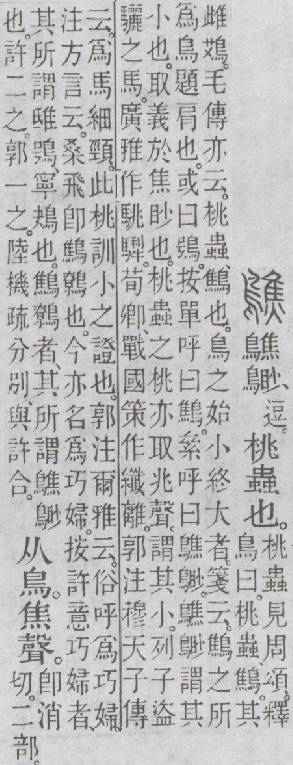 鷦 鷦䳟、逗。桃蟲也。桃蟲見周頌。釋
鳥曰。桃蟲、鷦。其
雌鴱。毛傳亦云。桃蟲、鷦也。鳥之始小終大者。箋云。鷦之所
爲鳥題肩也。或曰鴞。按單呼曰鷦。絫呼曰鷦䳟。鷦䳟謂其
小也。取義於焦眇也。桃蟲之桃亦取兆聲。謂其小。列子盜
驪之馬。廣雅作駣騹。荀卿、戰國策作纖離。郭注穆天子傳
云。爲馬細頸。此桃訓小之證也。郭注爾雅云。俗呼爲巧婦。
注方言云。桑飛卽鷦鷯也。今亦名爲巧婦。按許意巧婦者、
其所謂鴟鴞、寧鴂也。鷦鷯者、其所謂鷦䳟
也。許二之。郭一之。陸機疏分別、與許合。
从鳥。焦聲。卽消
切。二部。